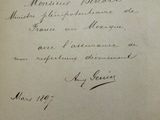 Monsieur Benoit
Ministre plénipotentiaire de
France au Mexique
avec l'assurance de
mon respectueux dévouement
Aug Genin
Mars 1897